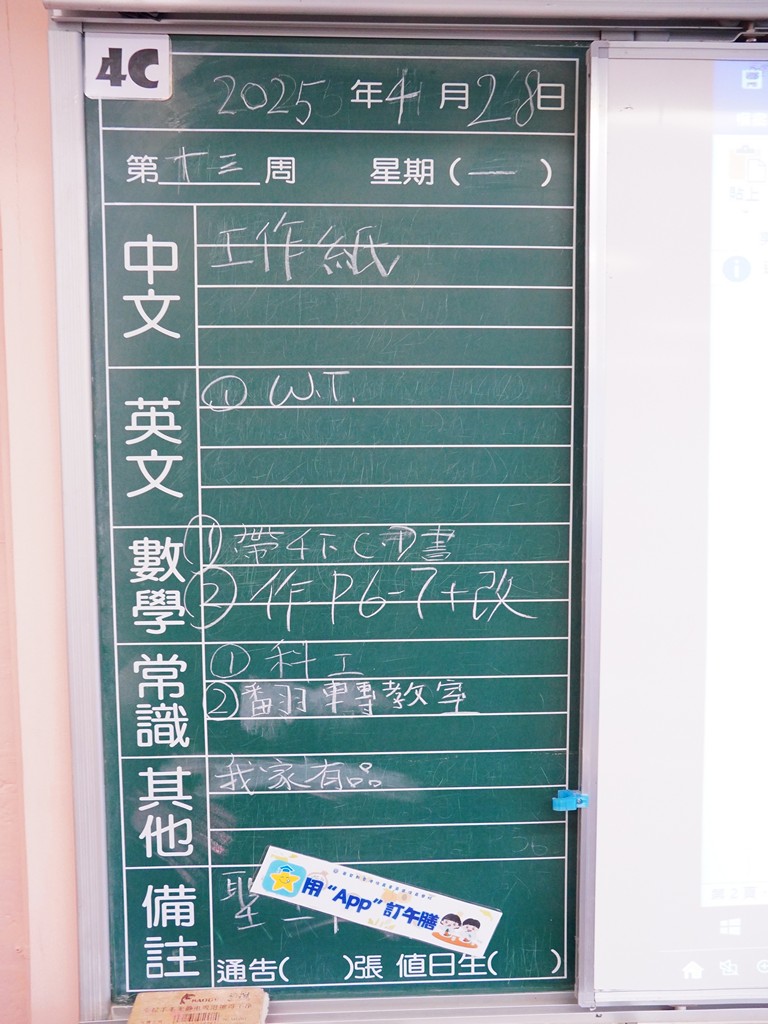 4C
2025年4月28日
第十三周 星期(一)
中文
工作紙
英文
① W.T.
數學
① 帶4下C冊書
② 作P6-7+改
常識
① 科工
② 翻轉教室
其他
我家有品
備註
聖
用“App”訂午膳
通告( )張 值日生( )